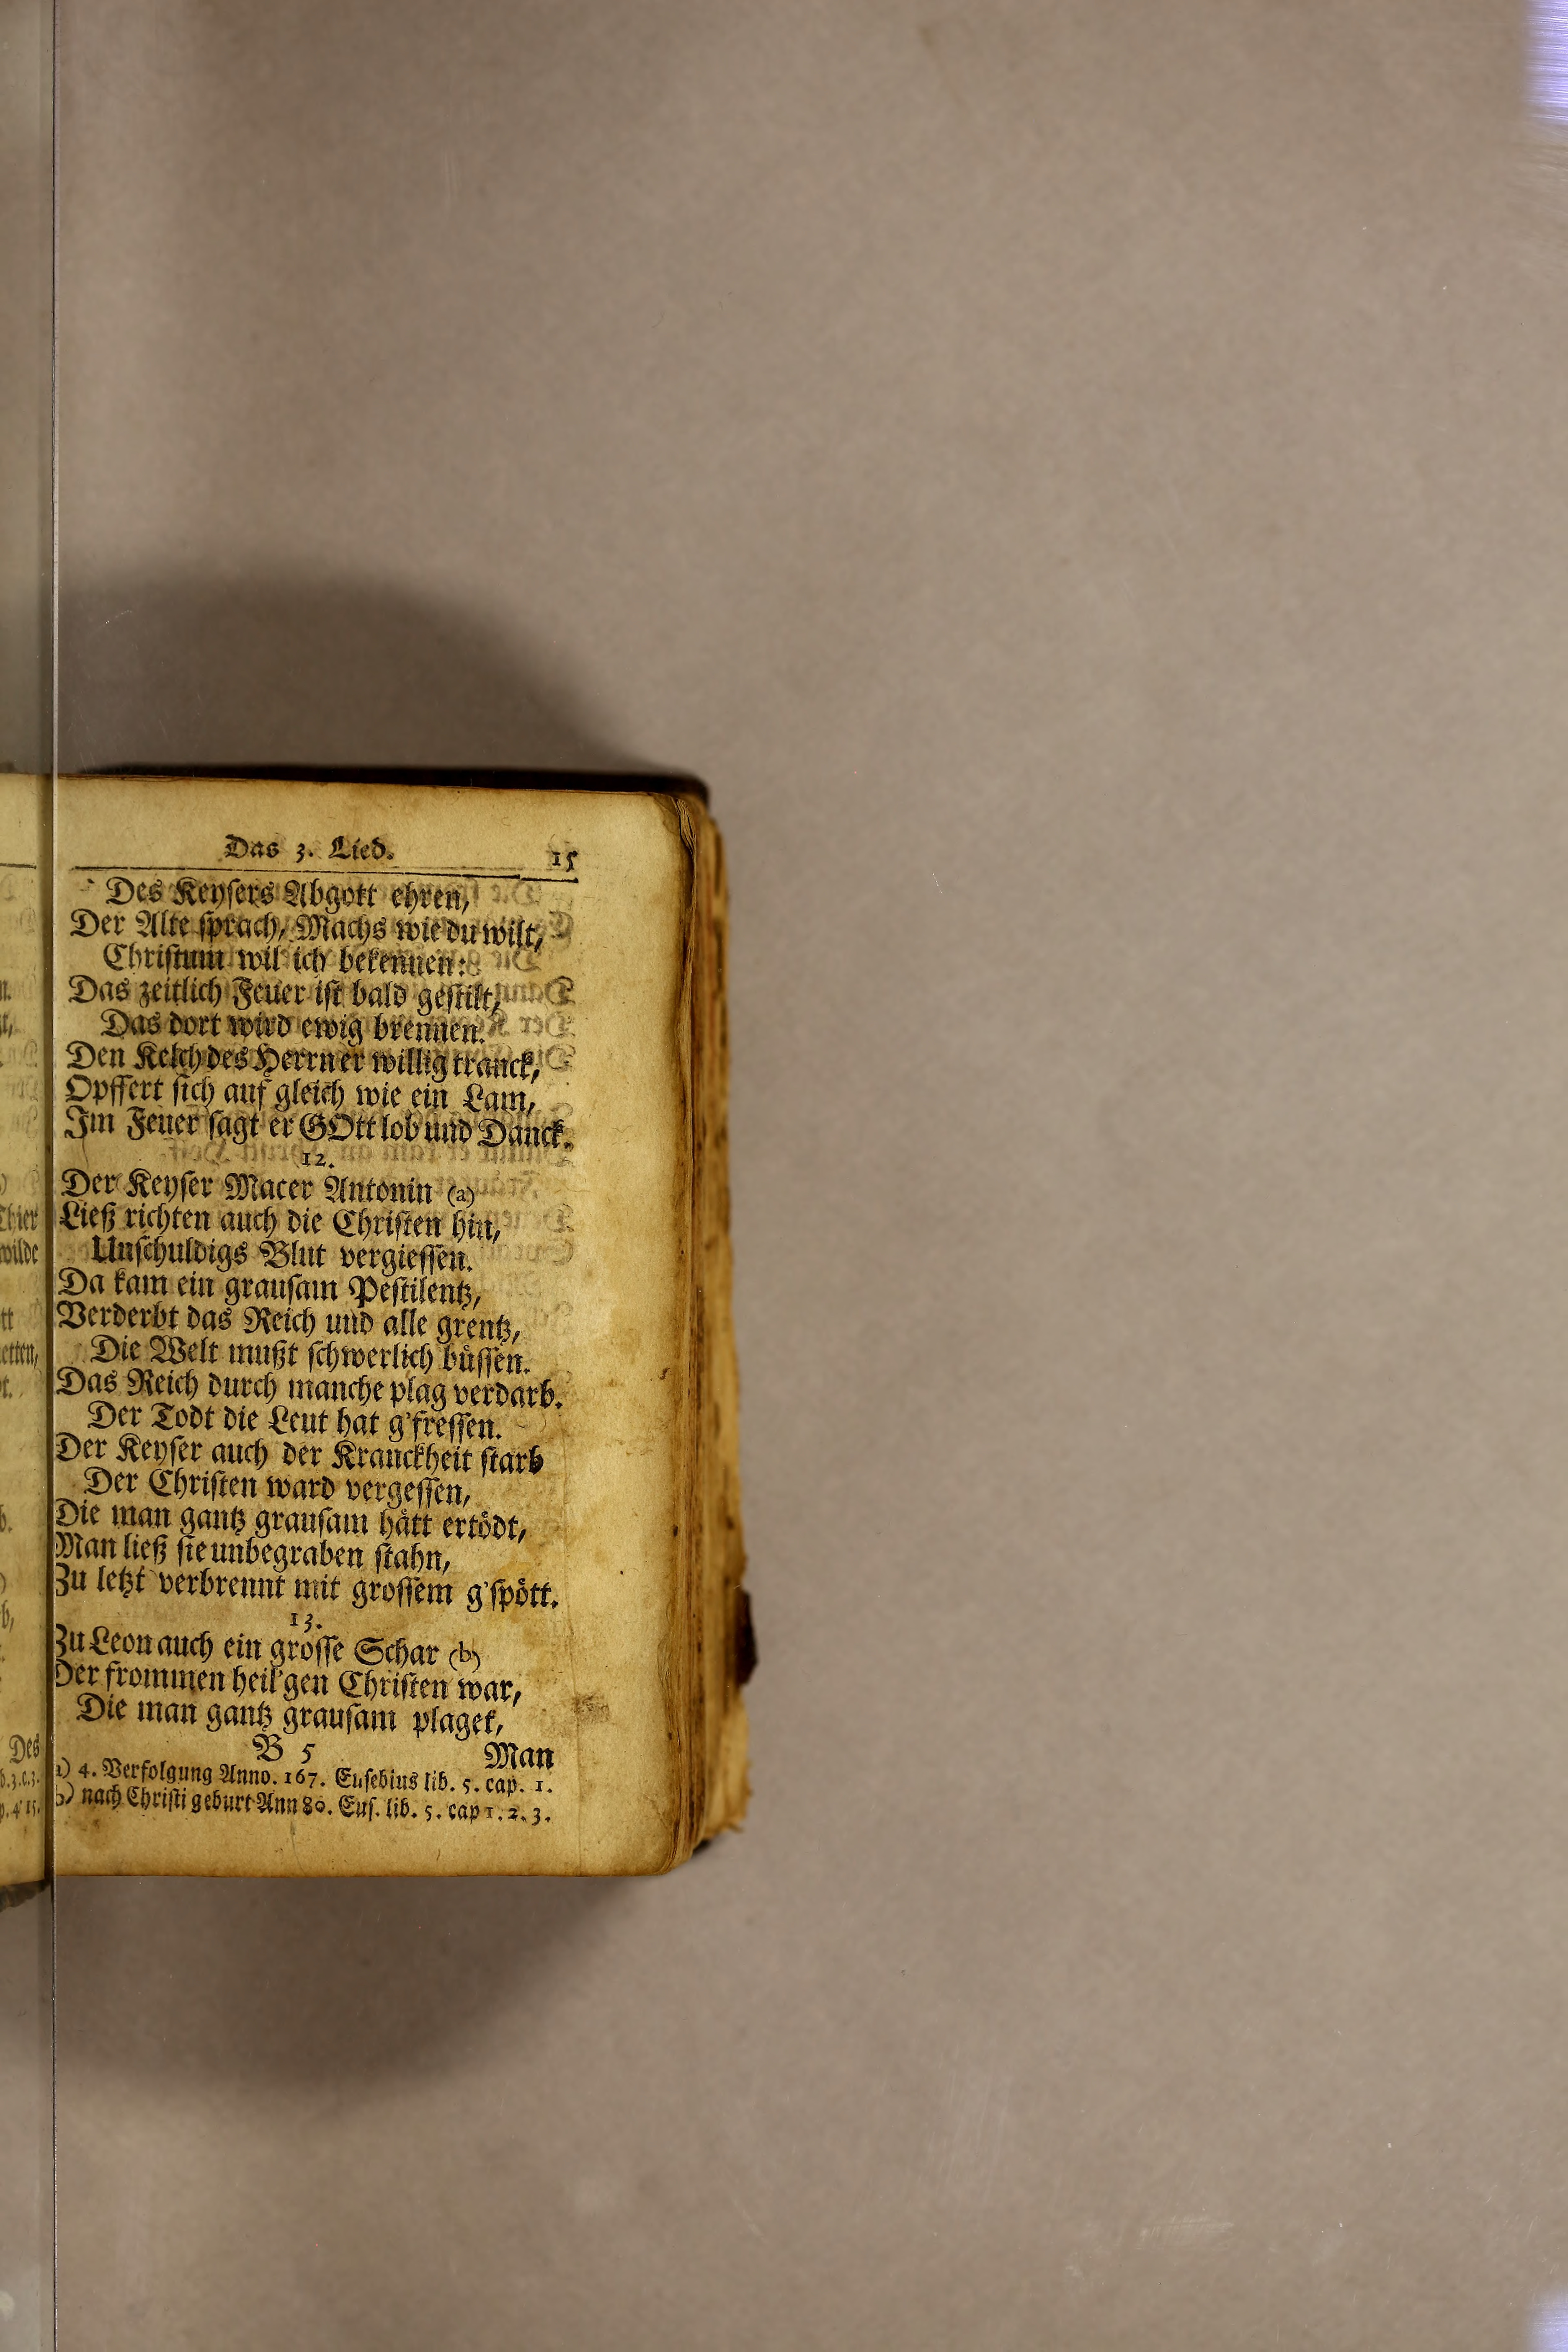 Das 3. Lied. 15
Des Keyſers Abgott ehren,
Der Alte ſprach, Machs wie du wilt,
Chriſtum wil ich bekennen:
Das zeitlich Feuer iſt bald geſtilt,
Das dort wird ewig brennen.
Den Kelch des Herrn er willig tranck,
Opffert ſich auf gleich wie ein Lam,
Im Feuer ſagt er GOtt lob und Danck.
12.
Der Keyſer Macer Antonin (a)
Ließ richten auch die Chriſten hin,
Unſchuldigs Blut vergieſſen.
Da kam ein grauſam Peſtilentz,
Verderbt das Reich und alle grentz,
Die Welt mußt ſchwerlich büſſen.
Das Reich durch manche plag verdarb.
Der Todt die Leut hat g'freſſen.
Der Keyſer auch der Kranckheit ſtarb
Der Chriſten ward vergeſſen,
Die man gantz grauſam hätt ertödt,
Man ließ ſie unbegraben ſtahn,
Zu letzt verbrennt mit groſſem g'ſpött.
13.
Zu Leon auch ein groſſe Schar (b)
Der frommen heil'gen Chriſten war,
Die man gantz grauſam plaget,
B 5 Man
a) 4. Verfolgung Anno. 167. Euſebius lib. 5. cap. 1.
b) nach Chriſti geburt Ann 80. Euſ. lib. 5. cap 1. 2. 3.